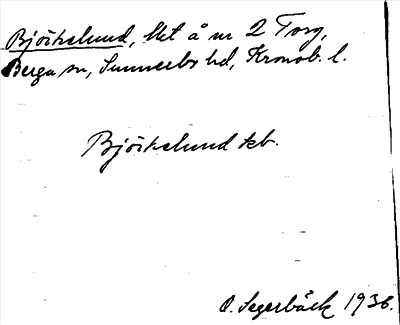 Björkelund, lht å nr 2 Torg,
Berga sn, Sunnerbo hd, Kronob. l.
Björkelund kb.
O. Segerbäck 1936.